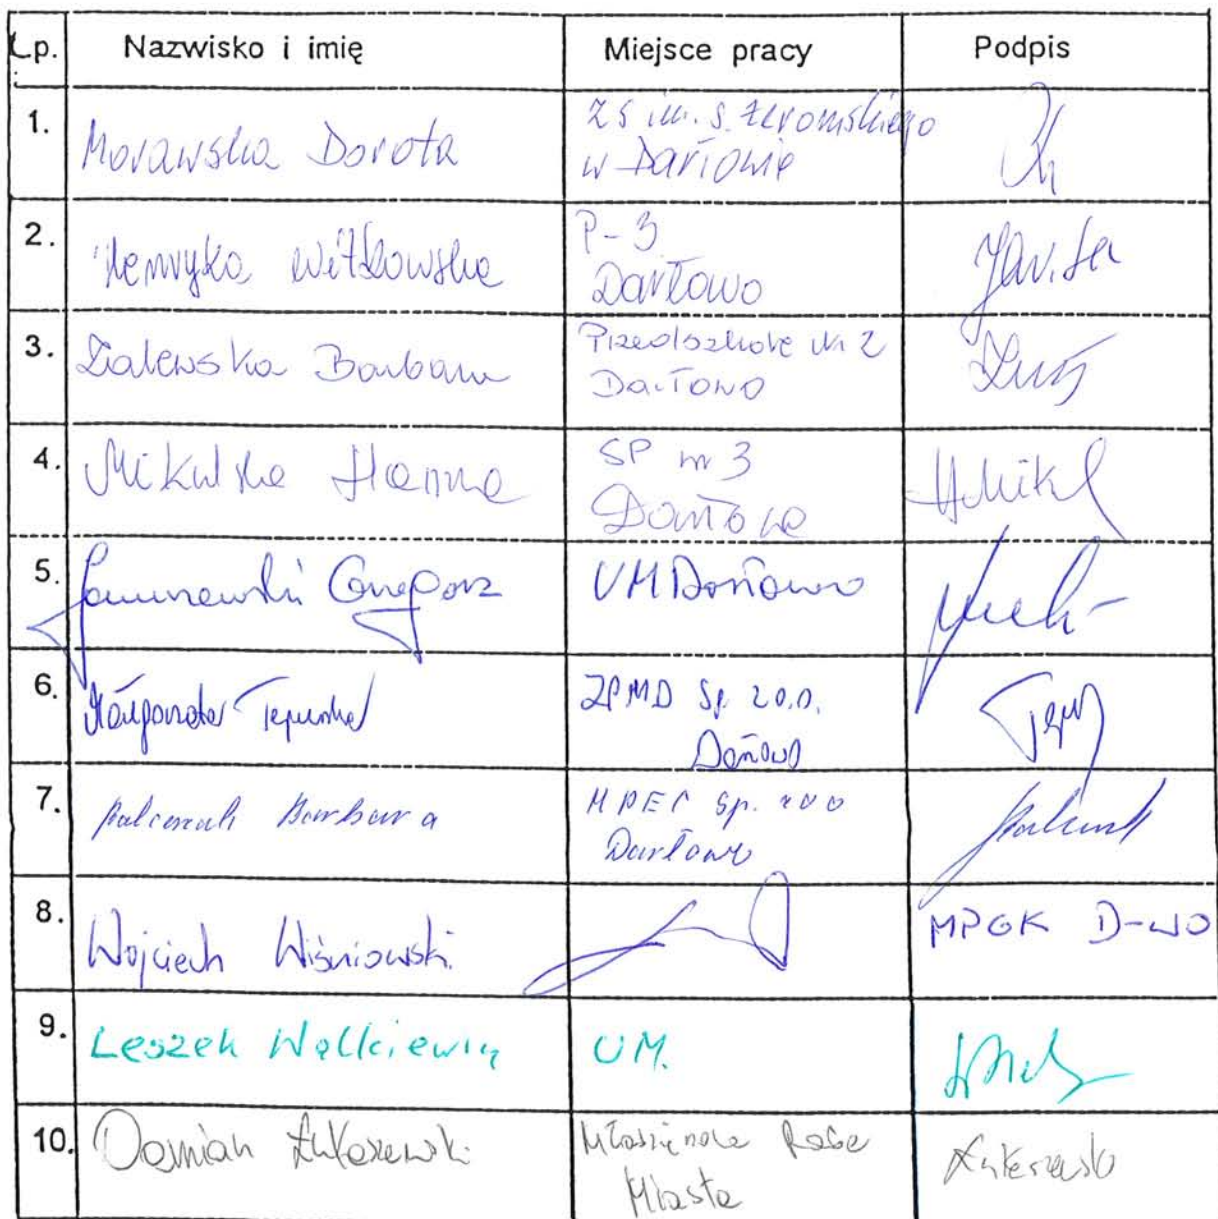 Lp. Nazwisko i imię Miejsce pracy Podpis
1. Morawska Dorota ZS im. S. Żeromskiego
w Darłowie
2. Henryka Witkowska P-3
Darłowo
3. Zalewska Barbara Przedszkole nr 2
Darłowo
4. Mikulska Hanna SP nr 3
Darłowo
5. Grzegorz UM Darłowo
6. Małgorzata ZPMD Sp. z o.o.
Darłowo
7. Barbara MPEC Sp. z o o
Darłowo
8. Wojciech Wiśniowski MPGK D-wo
9. Leszek Walkiewicz UM.
10. Damian Łukaszewski Młodzieżowa Rada
Miasta